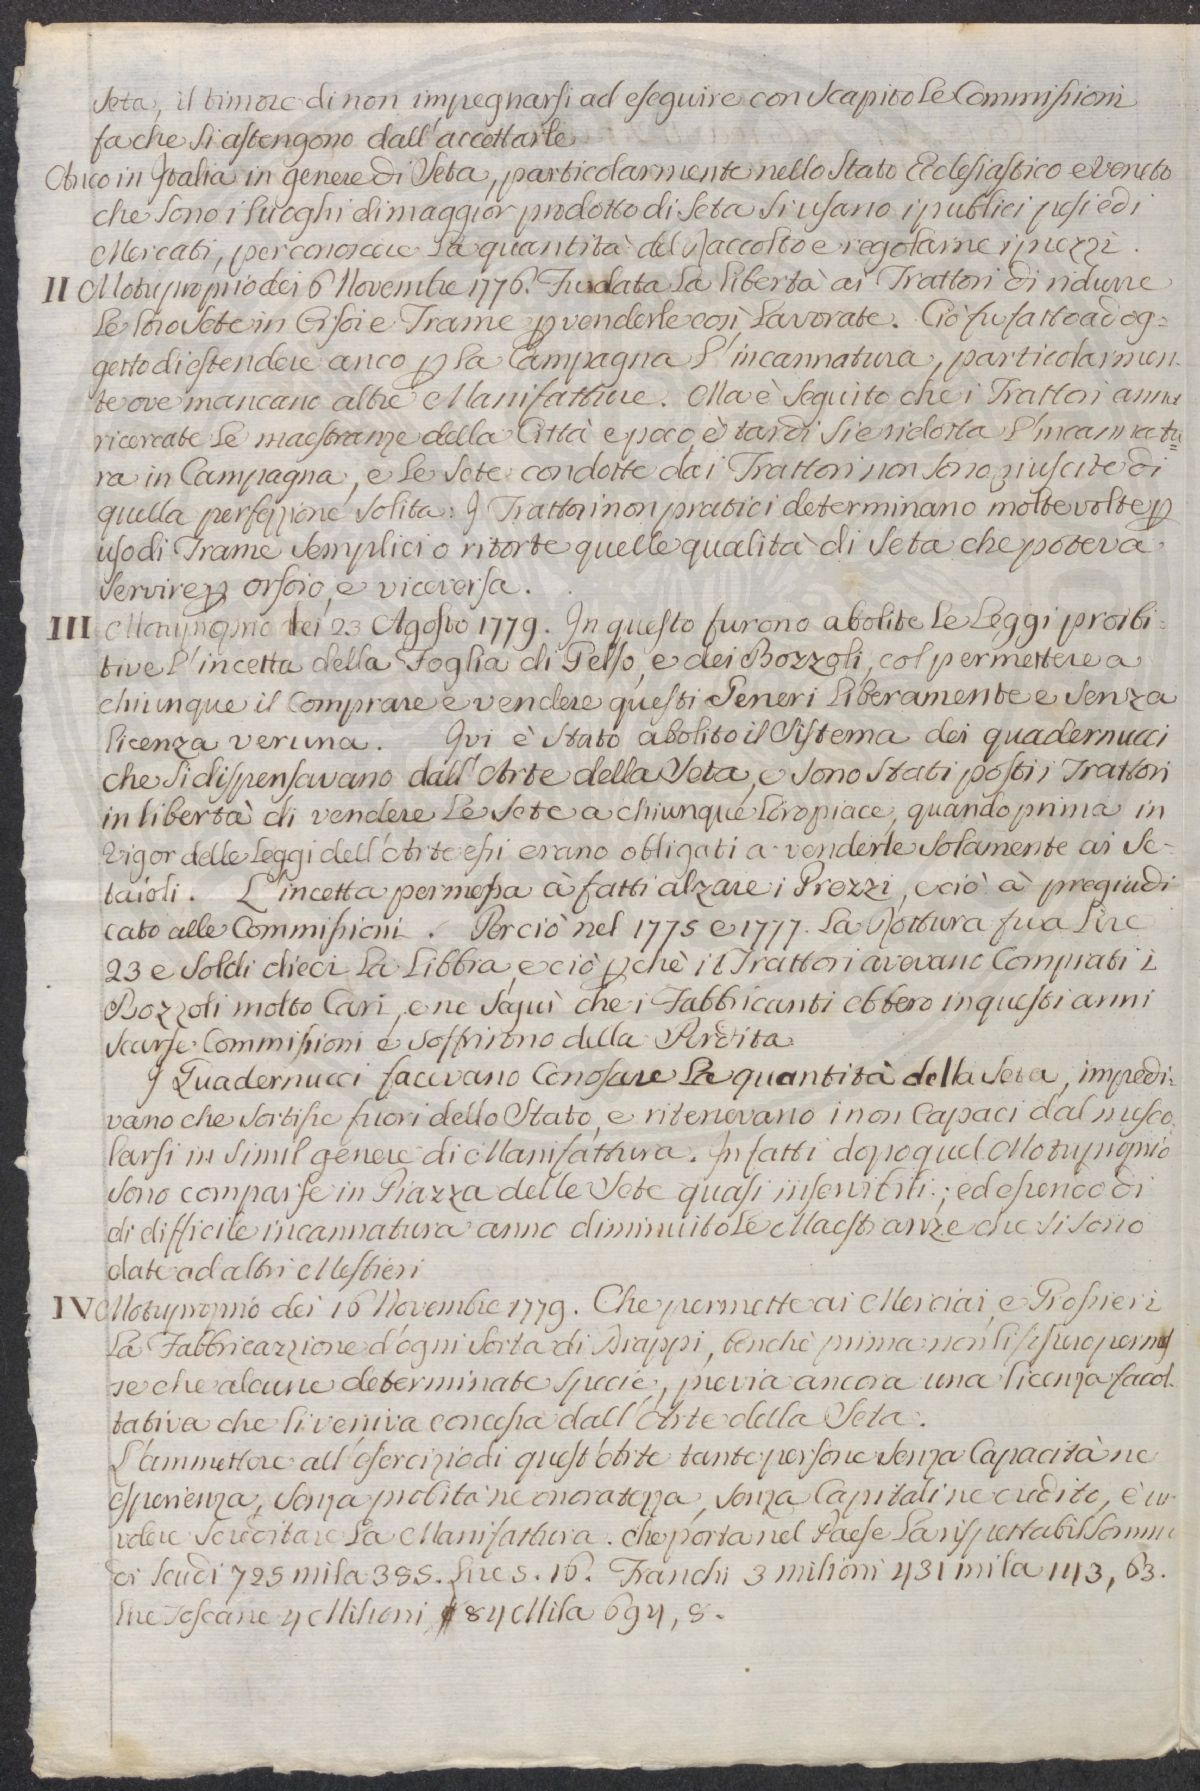 Seta, il timore di non impegnarsi ad eseguire con Scapito le Commissioni
fa che si astengono dall'accettarle
Anco in Italia in genere di Seta, particolarmente nello Stato Eclesiastico e Veneto
che sono i luoghi di maggior prodotto di Seta si usano i publici pesi e di
Mercati, per conoscere la quantità del Raccolto e regolarne i prezzi.
II Motuproprio dei 6 Novembre 1776. Fu data la libertà ai Trattori di ridurre
le loro Sete in Orsoi e Trame p venderle così Lavorate. Ciò fu fatto ad og=
getto di estendere anco p la Campagna l'incannatura, particolarmen=
te ove mancano altre Manifatture. Ma è seguito che i Trattori anno
ricercate le maestranze della Città e poco, è tardi si è ridotta l'incannatu=
ra in Campagna, e le Sete condotte dai Trattori non sono riuscite di
quella perfezzione solita: I Trattori non pratici determinano molte volte p
uso di Trame semplici o ritorte quelle qualità di Seta che poteva
servire p orsoio, e viceversa.
III Motuproprio dei 23 Agosto 1779. In questo furono abolite le Leggi proibi=
tive l'incetta della Foglia di Gelso, e dei Bozzoli, col permettere a
chiunque il Comprare e vendere questi Generi liberamente e senza
licenza veruna. Qui è stato abolito il Sistema dei quadernucci
che si dispensavano dall'Arte della Seta, e sono stati posti i Trattori
in libertà di vendere le Sete a chiunque loro piace, quando prima in
vigor delle Leggi dell'Arte essi erano obligati a venderle solamente ai Se=
taioli. L'incetta permessa à fatti alzare i Prezzi, e ciò à pregiudi
cato alle Commissioni. Perciò nel 1775 e 1777. La Rottura fu a Lire
23 e Soldi dieci la Libbra, e ciò pchè i Trattori avevano Comprati i
Bozzoli molto Cari, e ne seguì che i Fabbricanti ebbero in questi anni
scarse Commissioni e soffrirono della Perdita
I Quadernucci facevano Conoscere la quantità della Seta, impedi=
vano che sortisse fuori dello Stato, e ritenevano i non Capaci dal mesco=
larsi in simil genere di Manifattura. In fatti dopo quel Motuproprio
sono comparse in Piazza delle Sete quasi inservibili; ed essendo di
di difficile incannatura anno diminuito le Maestranze che si sono
date ad altri Mestieri
IV Motuproprio dei 16 Novembre 1779. Che permette ai Merciai, e Trossieri
la Fabbricazzione d'ogni sorta di Drappi, benchè prima non li fossero permes
se che alcune determinate specie, previa ancora una licenza facol=
tativa che li veniva concessa dall'Arte della Seta.
L'ammettere all'esercizio di quest'Arte tante persone senza Capacità ne
esperienza, senza probità ne onoratezza, senza Capitali ne credito, è un
vdere screditare la Manifattura. che porta nel Paese la rispettabil somma
di Scudi 725 mila 385. Lire 5. 16. Franchi 3 milioni 431 mila 143, 63.
Lire Toscane 4 Milioni 84 Mila 694, 8.